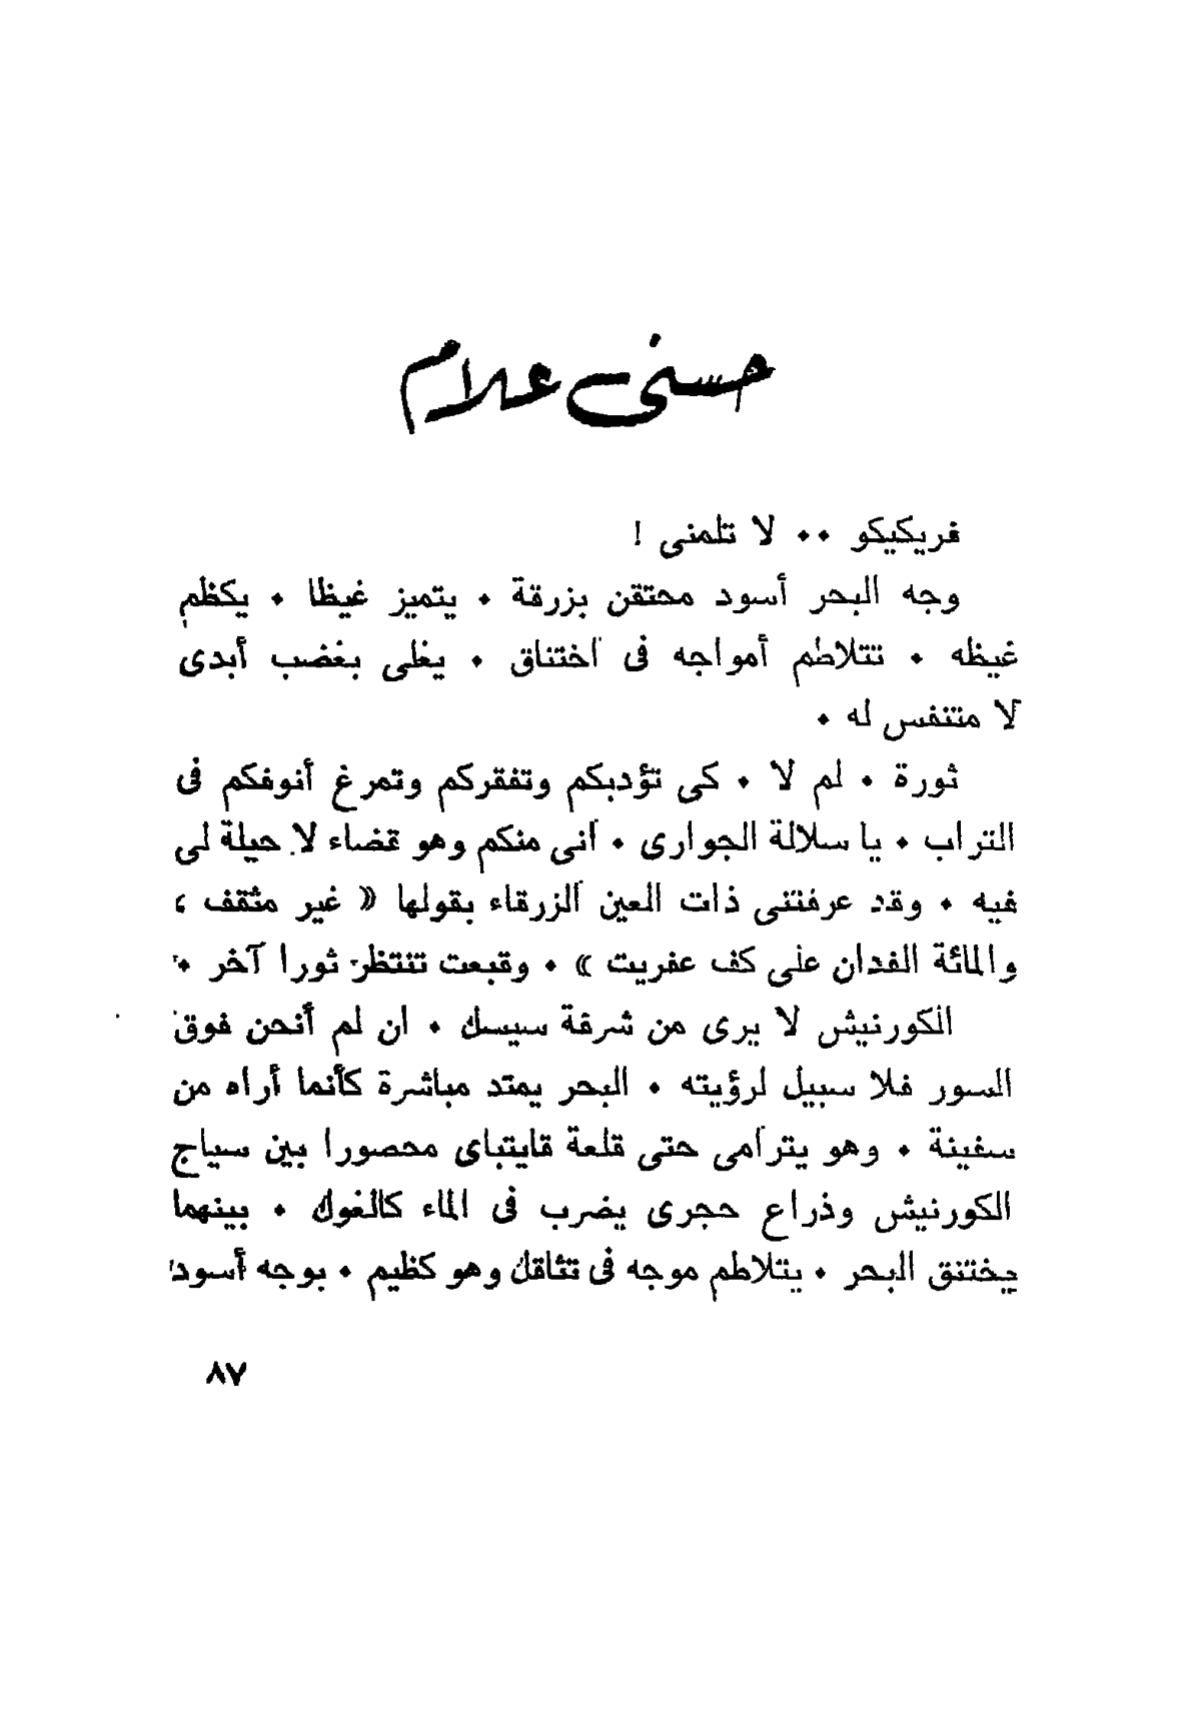 حسنى علام
فريكيكو ٠٠ لا تلمنى !
وجه البحر أسود محتقن بزرقة ٠ يتميز غيظا ٠ يكظم
غيظه ٠ تتلاطم أمواجه فى اختناق ٠ يغلى بغضب أبدى
لا متنفس له ٠
ثورة ٠ لم لا ٠ كى تؤدبكم وتفقركم وتمرغ أنوفكم فى
التراب ٠ يا سلالة الجوارى ٠ انى منكم وهو قضاء لا حيلة لى
فيه ٠ وقد عرفتنى ذات العين الزرقاء بقولها « غير مثقف ،
والمائة الفدان على كف عفريت » ٠ وقبعت تنتظر ثورا آخر ٠
الكورنيش لا يرى من شرفة سيسل ٠ ان لم أنحن فوق
السور فلا سبيل لرؤيته ٠ البحر يمتد مباشرة كأنما أراه من
سفينة ٠ وهو يترامى حتى قلعة قايتباى محصورا بين سياج
الكورنيش وذراع حجرى يضرب فى الماء كالغول ٠ بينهما
يختنق البحر ٠ يتلاطم موجه فى تثاقل وهو كظيم ٠ بوجه أسود
٨٧